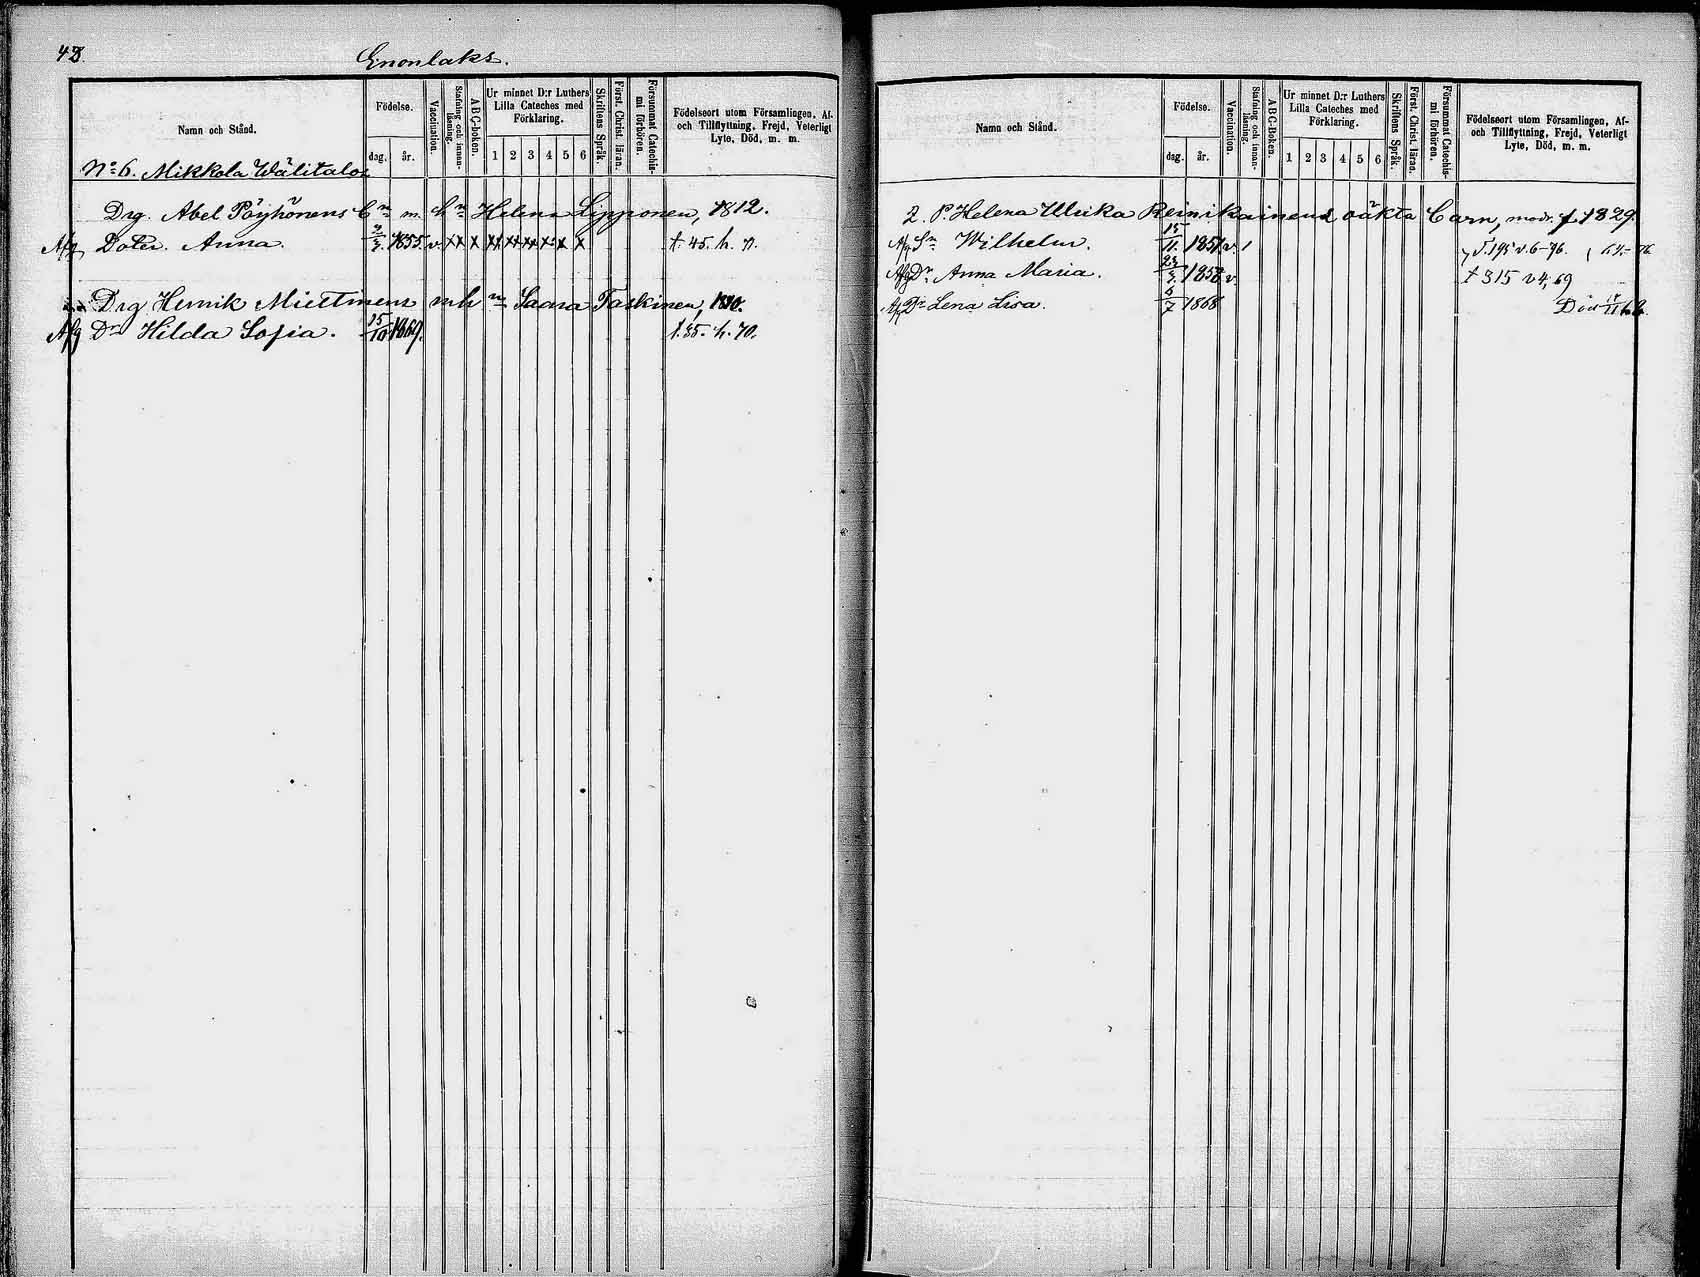 48.
Enonlaks.
Namn och Stånd.
Födelse.
dag. år.
Vaccination.
Stafning och innan-läsning.
ABC-boken.
Ur minnet D:r Luthers Lilla Cateches med Förklaring.
1 2 3 4 5 6
Skriftens Språk.
Först. Christ. läran.
Försummat Catechis-mi förhören.
Födelseort utom Församlingen, Af-
och Tillflyttning, Frejd, Veterligt
Lyte, Död, m. m.
No 6. Mikkola Wälitalo
Drg. Abel Pöyhönens Cn m. h. n Helena Lipponen, 1812.
Afg Doter. Anna. 1855. v. x x x x x x x x x t. 45. h. 71.
Drg Henrik Miettinens m h n Saara Taskinen,
Afg Dr Hilda Sofia. 15/10 1869. t. 35. h. 70.
Namn och Stånd.
Födelse.
dag. år.
Vaccination.
Stafning och innan-läsning.
ABC-Boken.
Ur minnet D:r Luthers Lilla Cateches med Förklaring.
1 2 3 4 5 6
Skriftens Språk.
Först. Christ. läran.
Försummat Catechis-mi förhören.
Födelseort utom Församlingen, Af-
och Tillflyttning, Frejd, Veterligt
Lyte, Död, m. m.
2. P. Helena Ulrika Reinikainens oäkta Barn, modr. f 1829.
Afg Sn Wilhelm. 15/11. 1851 v. 1
Afg Dr Anna Maria. 23 1858 v. t 315 v 4, 69
Afg Dr Lena Lisa. 6/7 1868 Död